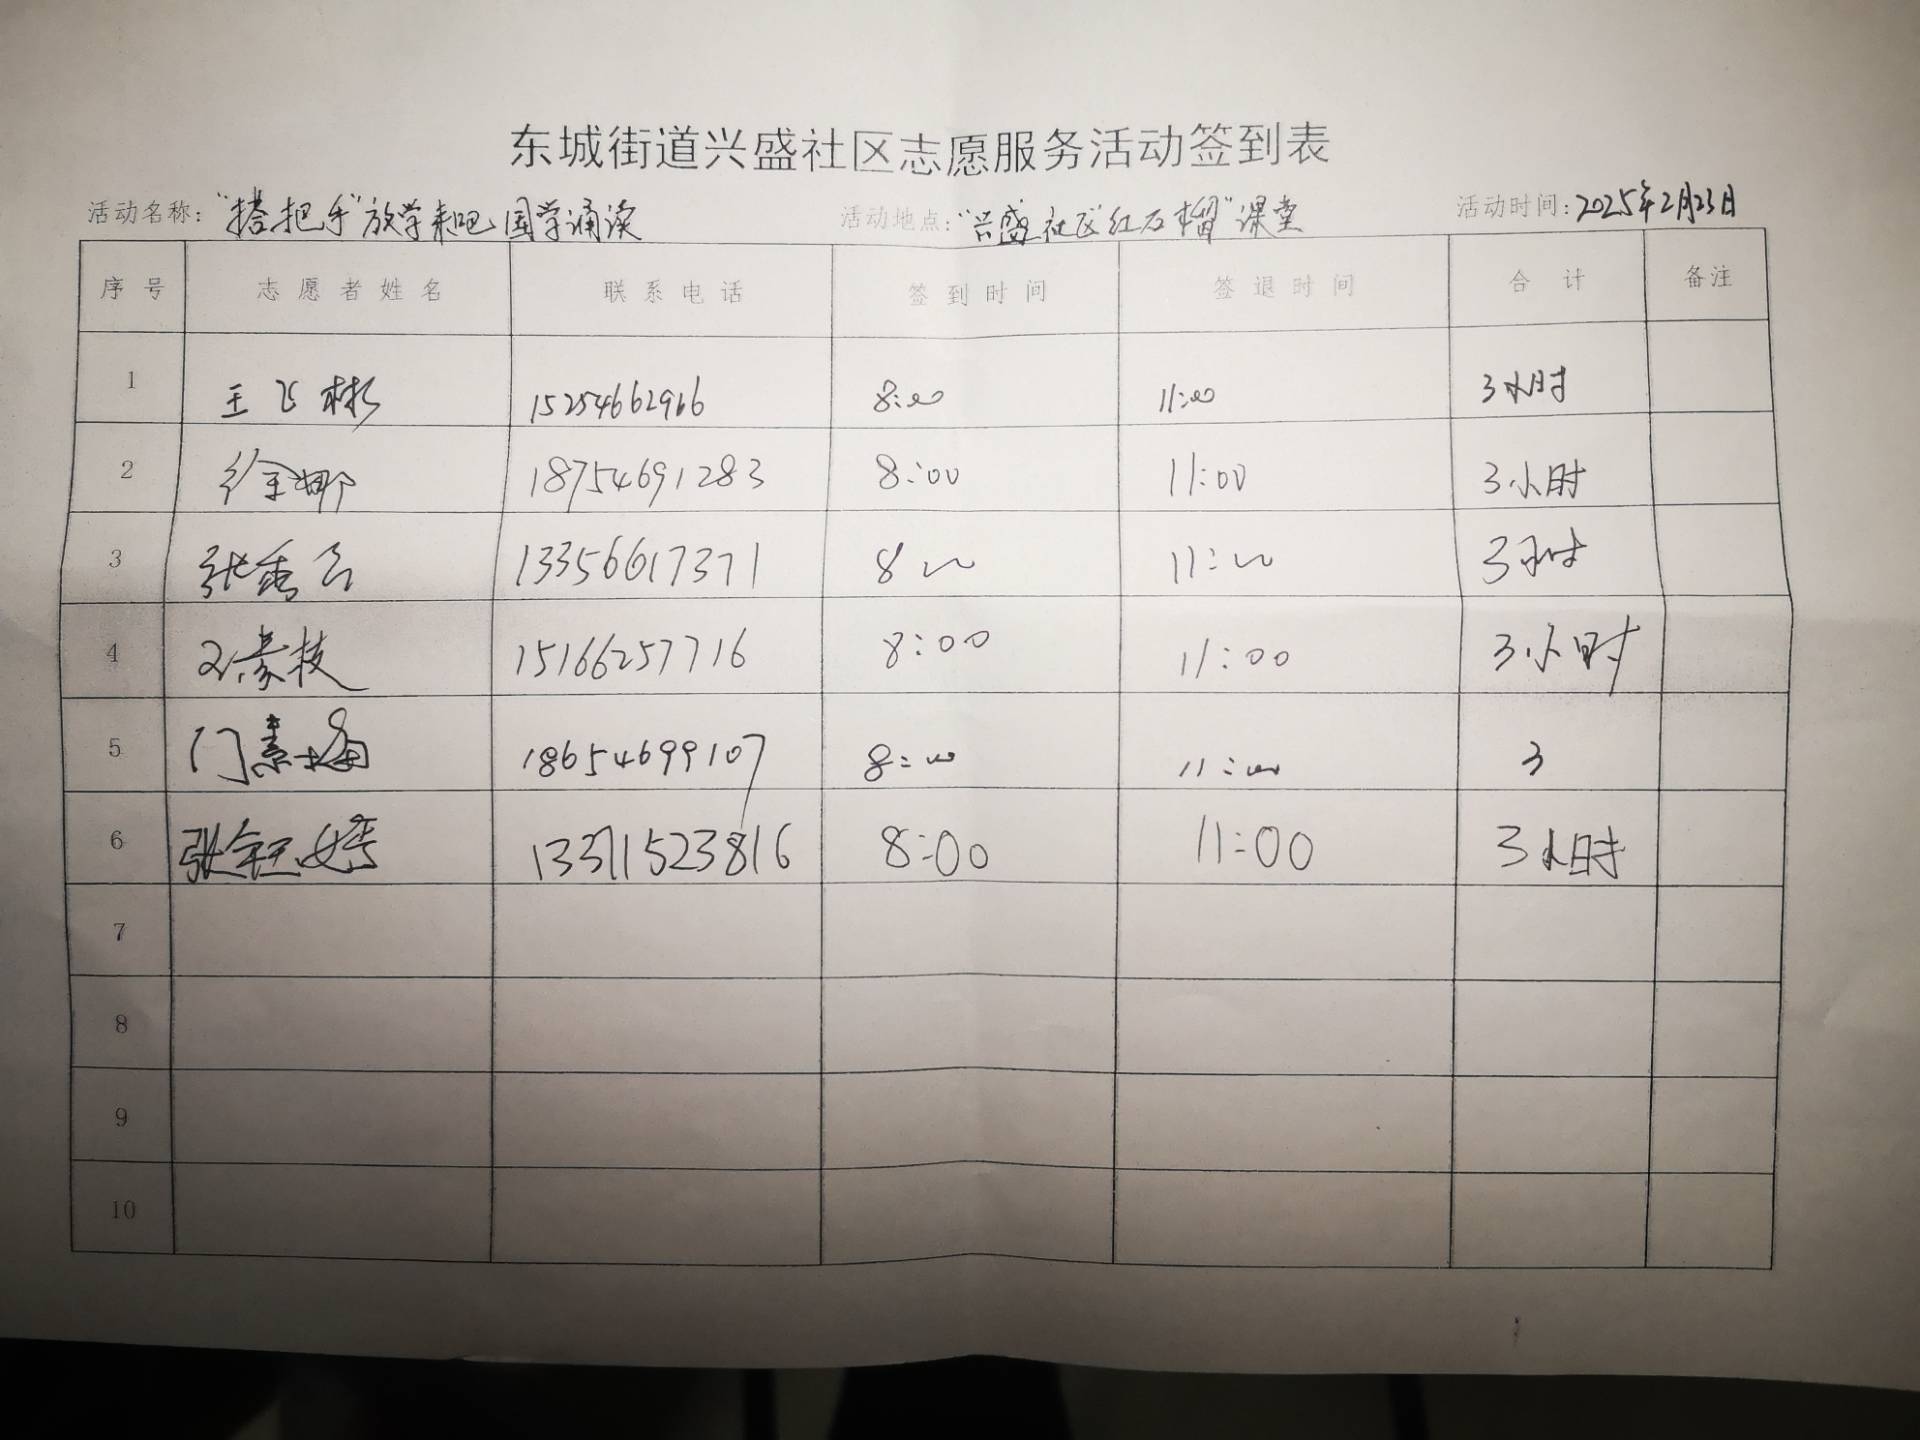 东城街道兴盛社区志愿服务活动签到表
活动名称："搭把手"放学来吧国学诵读 活动地点："兴盛社区"红石榴"课堂 活动时间：2025年2月23日
序号 志愿者姓名 联系电话 签到时间 签退时间 合计 备注
1 王飞彬 15254662966 8:00 11:00 3小时
2 徐金娜 18754691283 8:00 11:00 3小时
3 张秀云 13356617371 8 00 11:00 3小时
4 15166257716 8:00 11:00 3小时
5 门素梅 18654699107 8:00 11:00 3
6 张钰婷 13371523816 8:00 11:00 3小时
7
8
9
10